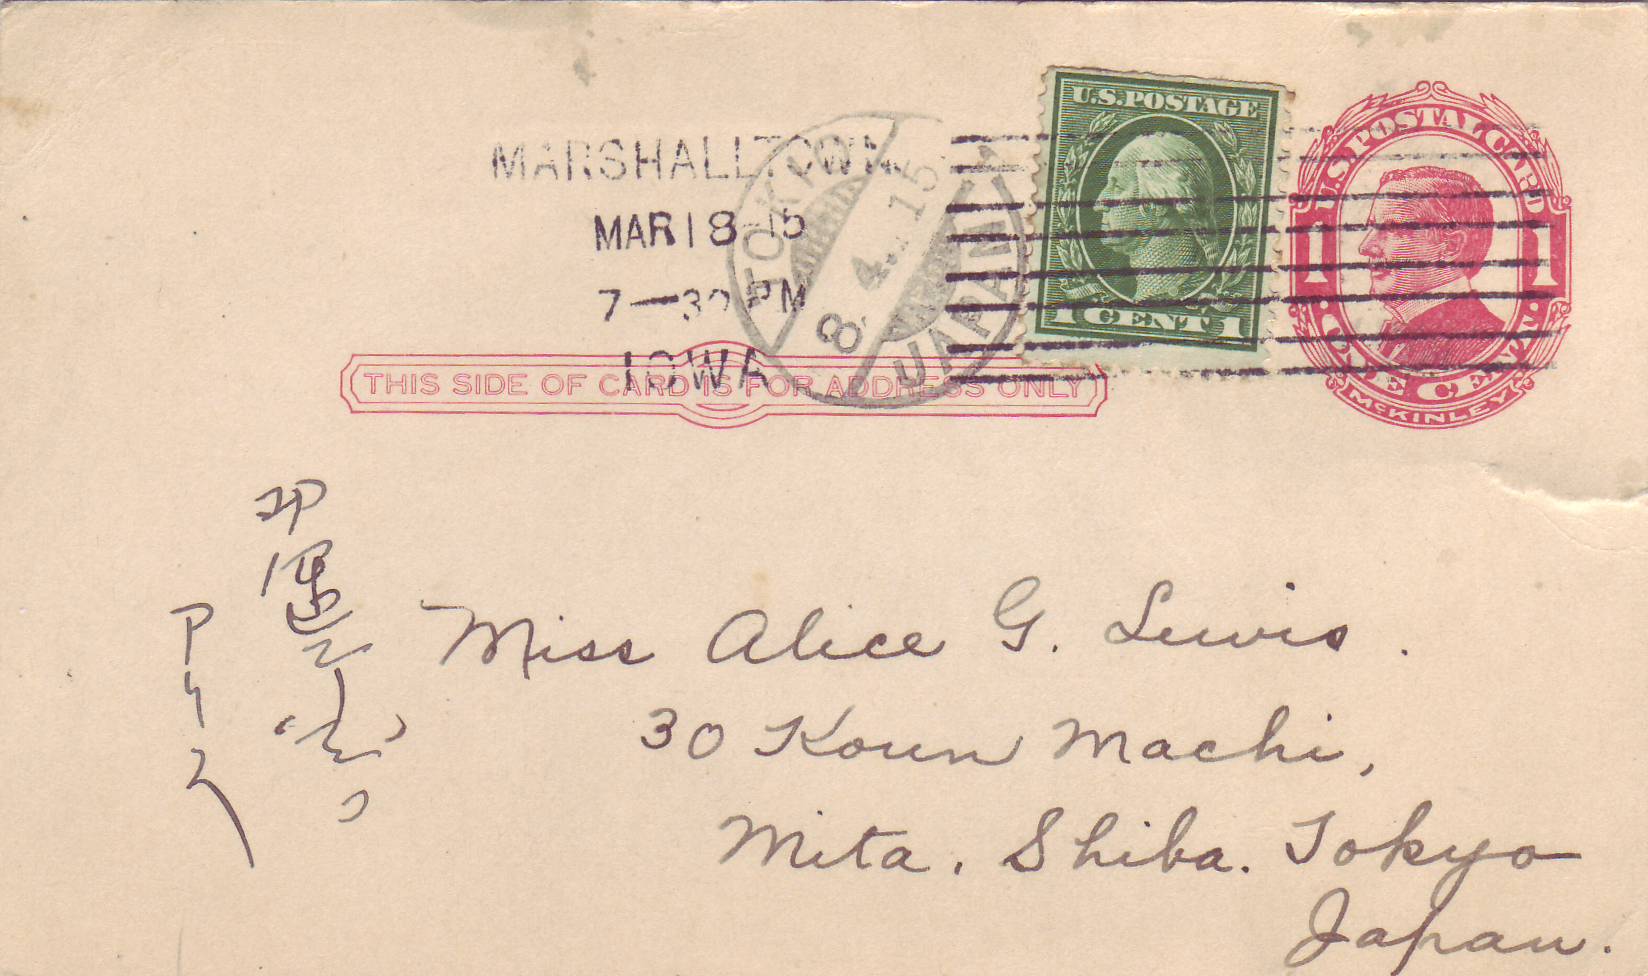 MARSHALLTOWN
MAR 18 15
7—30 PM
IOWA
TOKIO
8 4. 15
JAPAN
U.S. POSTAGE
1 CENT 1
U.S. POSTAL CARD
1 1
ONE CENT
McKINLEY
THIS SIDE OF CARD IS FOR ADDRESS ONLY
Miss Alice G. Lewis.
30 Koun Machi,
Mita, Shiba. Tokyo
Japan.